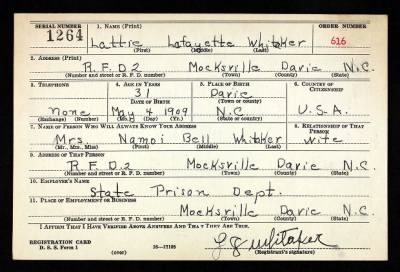 SERIAL NUMBER 1. NAME (Print) ORDER NUMBER
1264 Lattie Lafayette Whitaker 616
(First) (Middle) (Last)
2. ADDRESS (Print)
R.F.D.2 Mocksville Davie N.C.
(Number and street or R. F. D. number) (Town) (County) (State)
3. TELEPHONE 4. AGE IN YEARS 5. PLACE OF BIRTH 6. COUNTRY OF CITIZENSHIP
31 Davie
DATE OF BIRTH (Town or county)
None May 4 1909 N.C. U.S.A.
(Exchange) (Number) (Mo.) (Day) (Yr.) (State or country)
7. NAME OF PERSON WHO WILL ALWAYS KNOW YOUR ADDRESS 8. RELATIONSHIP OF THAT PERSON
Mrs. Bell Whitaker wife
(Mr., Mrs., Miss) (First) (Middle) (Last)
9. ADDRESS OF THAT PERSON
R.F.D.2 Mocksville Davie N.C.
(Number and street or R. F. D. number) (Town) (County) (State)
10. EMPLOYER'S NAME
State Prison Dept.
11. PLACE OF EMPLOYMENT OR BUSINESS
Mocksville Davie N.C.
(Number and street or R. F. D. number) (Town) (County) (State)
I AFFIRM THAT I HAVE VERIFIED ABOVE ANSWERS AND THAT THEY ARE TRUE.
REGISTRATION CARD
D. S. S. Form 1 (over) 16—17105 Whitaker
(Registrant's signature)